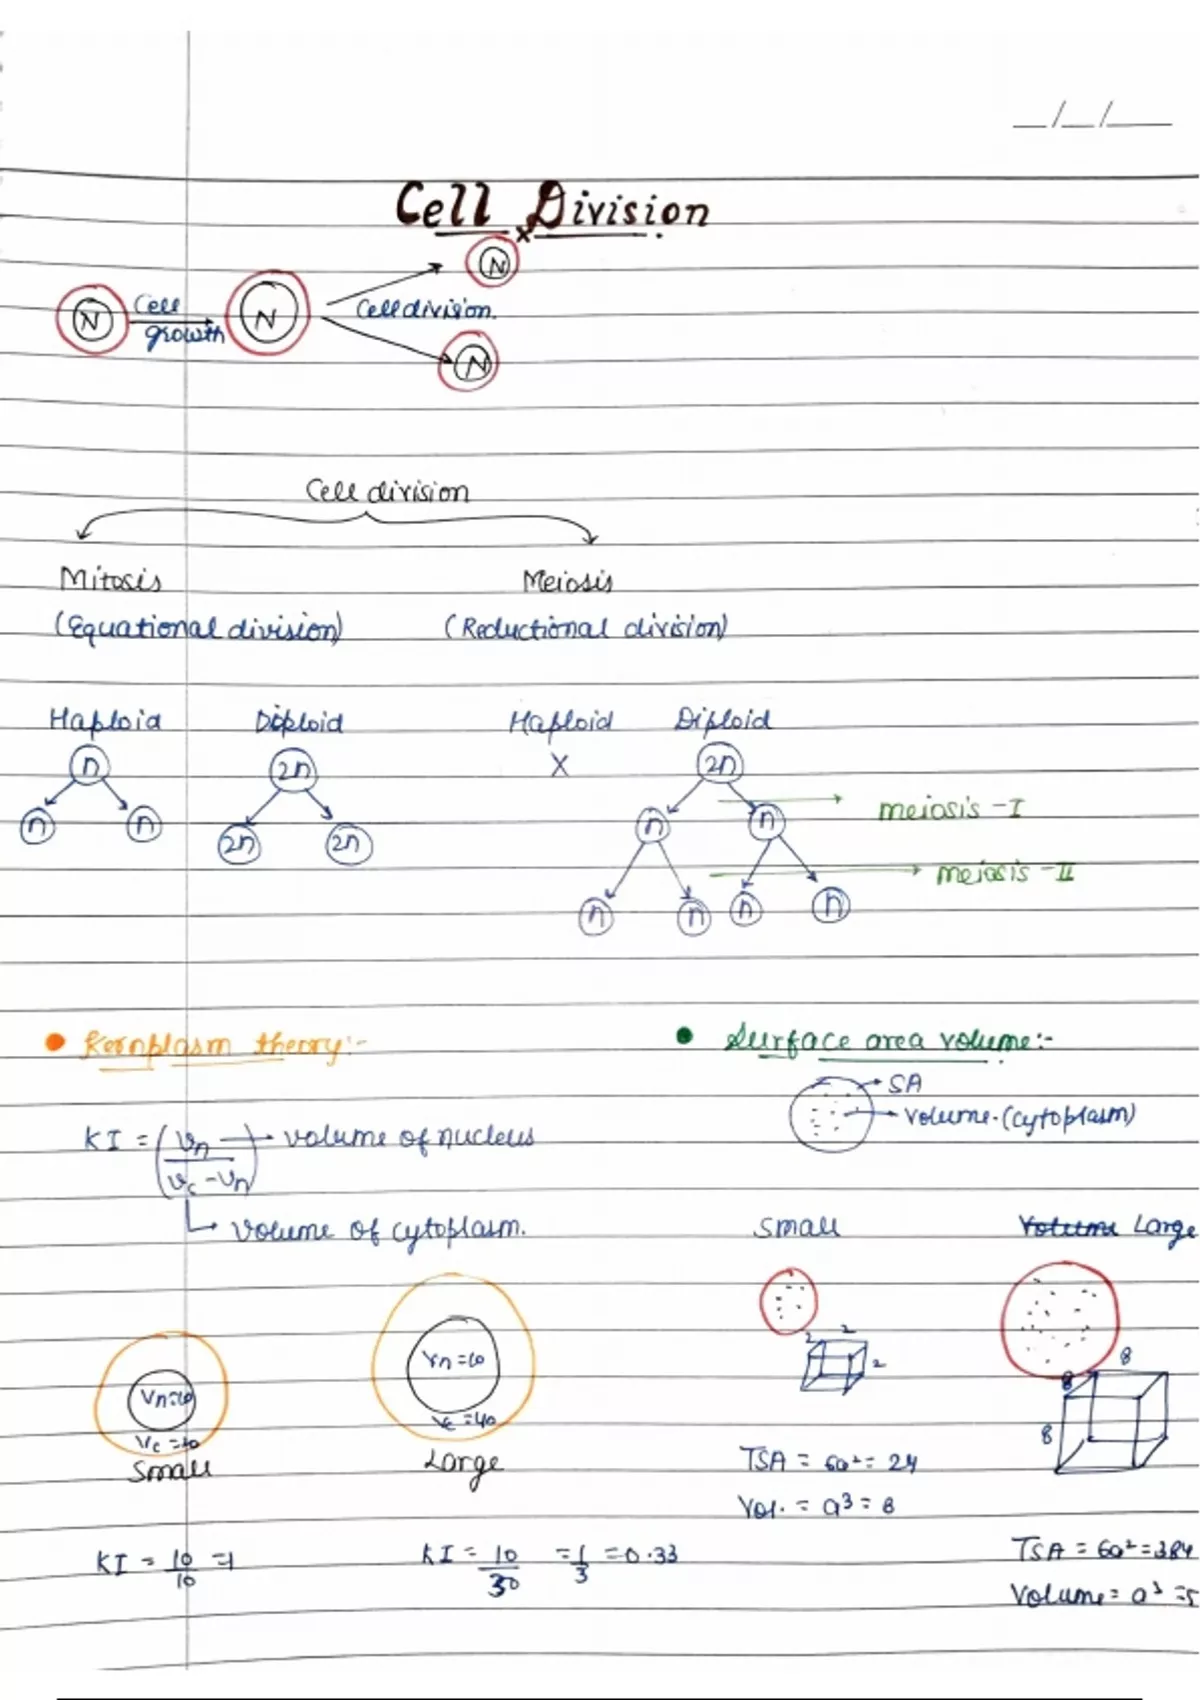 __/__/____
Cell Division
N Cell growth N Cell division. N
N
Cell division
Mitosis Meiosis
(Equational division) (Reductional division)
Haploid Diploid Haploid Diploid
n 2n X 2n
n n 2n 2n n n meiosis - I
meiosis - II
n n n n
• Kernplasm theory:- • Surface area volume:-
SA
volume. (cytoplasm)
KI = (Vn / Vc - Vn) → volume of nucleus
volume of cytoplasm.
small Volume Large
Vn=10 Vn=10
Vc = 40
Small Large
2 2 2
8 8 8
TSA = 6a² = 24
Vol. = a³ = 8
KI = 10/10 = 1 KI = 10/30 = 1/3 = 0.33 TSA = 6a² = 384
Volume = a³ = 5